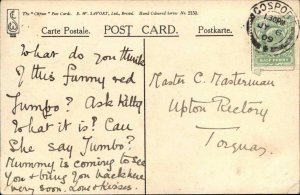 The "Clifton" Post Cards. E. W. SAVORY, Ltd., Bristol. Hand Coloured Series No. 2152.
Carte Postale. POST CARD. Postkarte.
GOSPORT
What do you think
of this funny red
Jumbo? Ask Kitty
What it is? Can
She say Jumbo?
Mummy is coming to see
You & bring you back here
very soon. love & kisses.
Master C. Masterman
Upton Rectory
Torquay